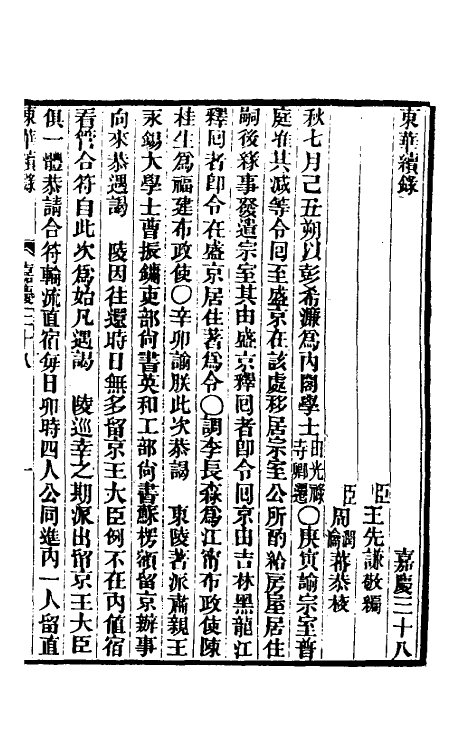 東華續錄
嘉慶三十八
臣王先謙敬編
臣周潤蕃恭校
周瀹蕃恭校
秋七月己丑朔以彭希濂為內閣學士由光祿寺卿遷〇庚寅諭宗室普
庭准其減等令回至盛京在該處移居宗室公所酌給房屋居住
嗣後緣事發遣宗室其由盛京釋回者卽令回京由吉林黑龍江
釋回者卽令在盛京居住著為令〇調李長森為江甯布政使陳
桂生為福建布政使〇辛卯諭朕此次恭謁 東陵著派肅親王
永錫大學士曹振鏞吏部尙書英和工部尙書蘇楞額留京辦事
向來恭遇謁 陵因往還時日無多留京王大臣例不在內値宿
看管合符自此次為始凡遇謁 陵巡幸之期派出留京王大臣
俱一體恭請合符輪流直宿每日卯時四人公同進內一人留直
東華續錄 嘉慶三十八 一